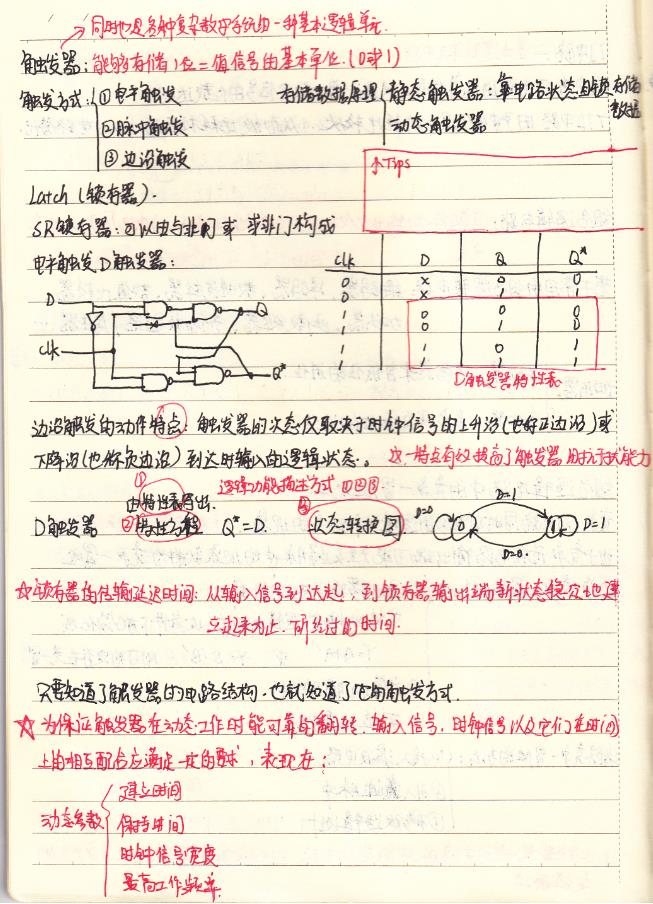 同时也是各种复杂数字系统的一种基本逻辑单元.
触发器: 能够存储1位二值信号的基本单位. (0或1)
触发方式: ①电平触发 存储数据原理 静态触发器: 靠电路状态自锁存储数据
②脉冲触发 动态触发器
③边沿触发
↑Tips
Latch (锁存器).
SR锁存器: 可以由与非门或 或非门构成
电平触发D触发器:
clk D Q Q*
0 x 0 0
0 x 1 1
1 0 0 0
1 0 1 0
1 1 0 1
1 1 1 1
D触发器特性表
D Q
clk Q*
边沿触发的动作特点: 触发器的次态仅取决于时钟信号的上升沿(也称正边沿)或
下降沿(也称负边沿)到达时输入的逻辑状态。 这一特点有效提高了触发器的抗干扰能力
① 逻辑功能描述方式 ①②③
由特性表得出.
D触发器 ②特性方程 Q*=D. ③ 状态转换图 D=0 0 D=1 1 D=1
D=0.
☆锁存器的传输延迟时间: 从输入信号到达起, 到锁存器输出端新状态稳定地建
立起来为止. 所经过的时间.
只要知道了触发器的电路结构. 也就知道了它的触发方式.
☆为保证触发器在动态工作时能可靠的翻转. 输入信号. 时钟信号以及它们在时间
上的相互配合应满足一定的要求, 表现在:
动态参数 建立时间
保持时间
时钟信号宽度
最高工作频率.